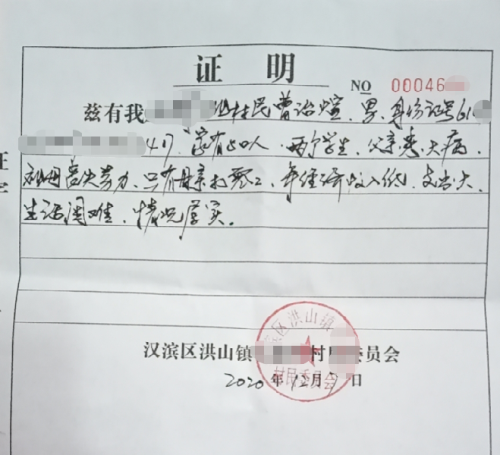 证 明
NO 00046
兹有我 村民曹治煊、男、身份证号61
47,家有5口人、两个学生,父亲患大病,
丧失劳力、只有母亲打零工、年经济收入低、支出大、
生活困难、情况属实。
汉滨区洪山镇 村 委员会
2020年12月 日
区洪山镇
村民委员会
证
字